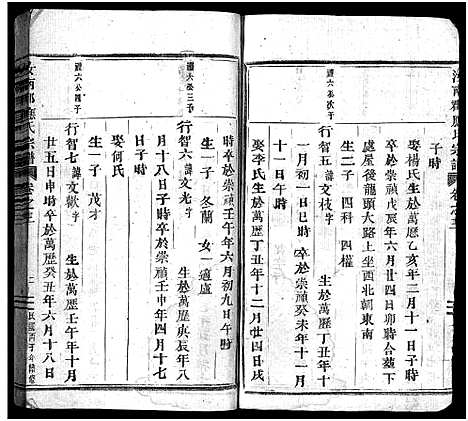 汝南郡應氏宗譜 卷之三
子時
娶楊氏生於萬歷乙亥年三月十一日子時
卒於崇禎戊辰年六月廿四日卯時合葬下
處屋後龍頭大路上坐西北朝東南
生二子 四科 四權
禮六公次子
行智五 諱文枝字 生於萬歷丁丑年十
一月初一日巳時 卒於崇禎癸未年十一月
十一日午時
娶李氏生於萬歷丁丑年十二月廿四日戌
時卒於崇禎壬午年六月初九日午時
生一子 冬蘭 女一適盧
禮六公三子
行智六 諱文光字 生於萬歷庚辰年八
月十八日子時卒於崇禎壬申年四月十七
日子時
娶何氏
生一子 茂才
禮六公四子
行智七 諱文歡字 生於萬歷壬午年十月
廿五日申時卒於萬歷壬午年六月十八日
汝南郡應氏宗譜 卷之三